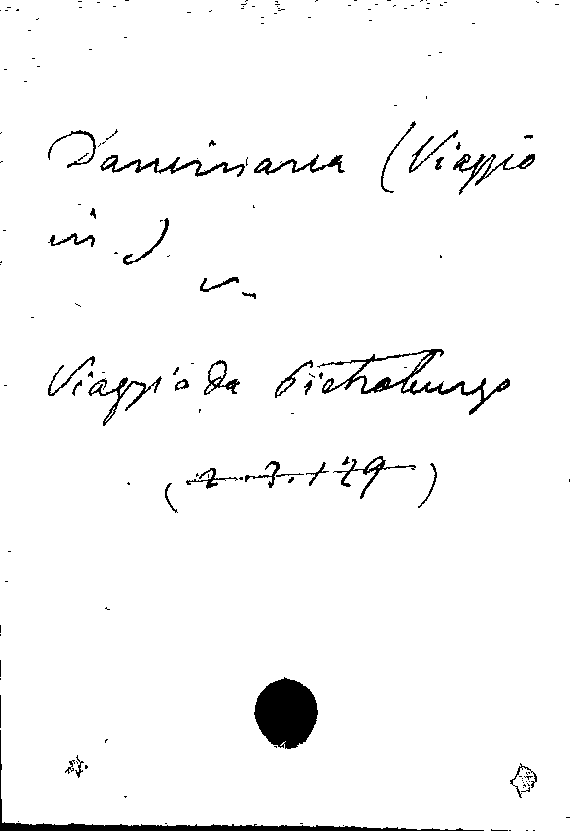 Danimarca (Viaggio
in.)
v.
Viaggio da Pietroburgo
(2.3.129)